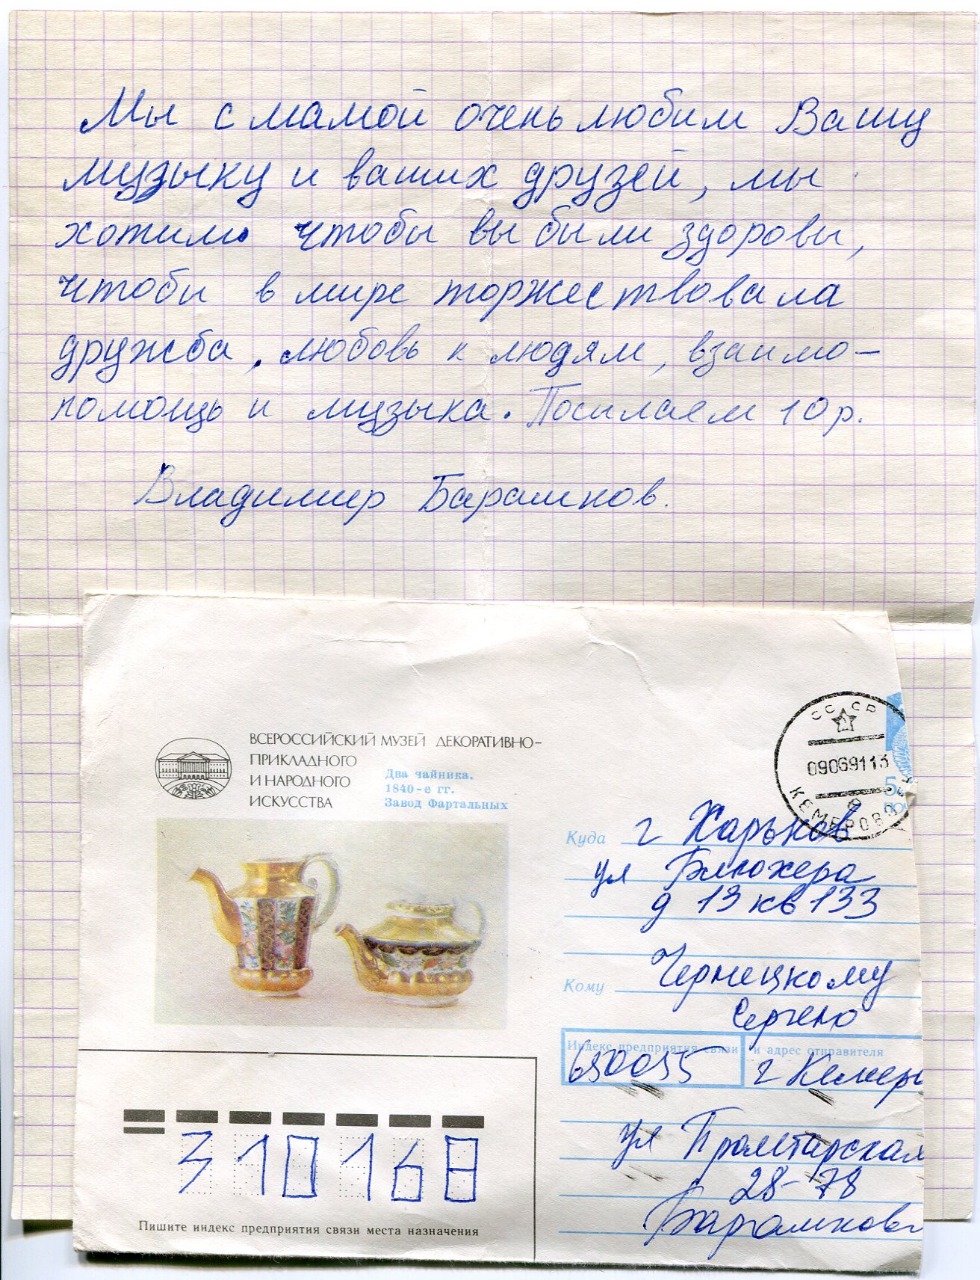 Мы с мамой очень любим Вашу
музыку и ваших друзей, мы
хотим чтобы вы были здоровы,
чтобы в мире торжествовала
дружба, любовь к людям, взаимо-
помощь и музыка. Посылаем 10 р.
Владимир Барашков.
ВСЕРОССИЙСКИЙ МУЗЕЙ ДЕКОРАТИВНО-
ПРИКЛАДНОГО
И НАРОДНОГО
ИСКУССТВА
Два чайника.
1840-е гг.
Завод Фартальных
СССР
09069113
КЕМЕРОВО
5
Куда г Харьков
ул Блюхера
д 13 кв 133
Кому Чернецкому
Сергею
Индекс предприятия связи и адрес отправителя
650055 г Кемеро
ул Пролетарская
28-78
Барашков
310168
Пишите индекс предприятия связи места назначения